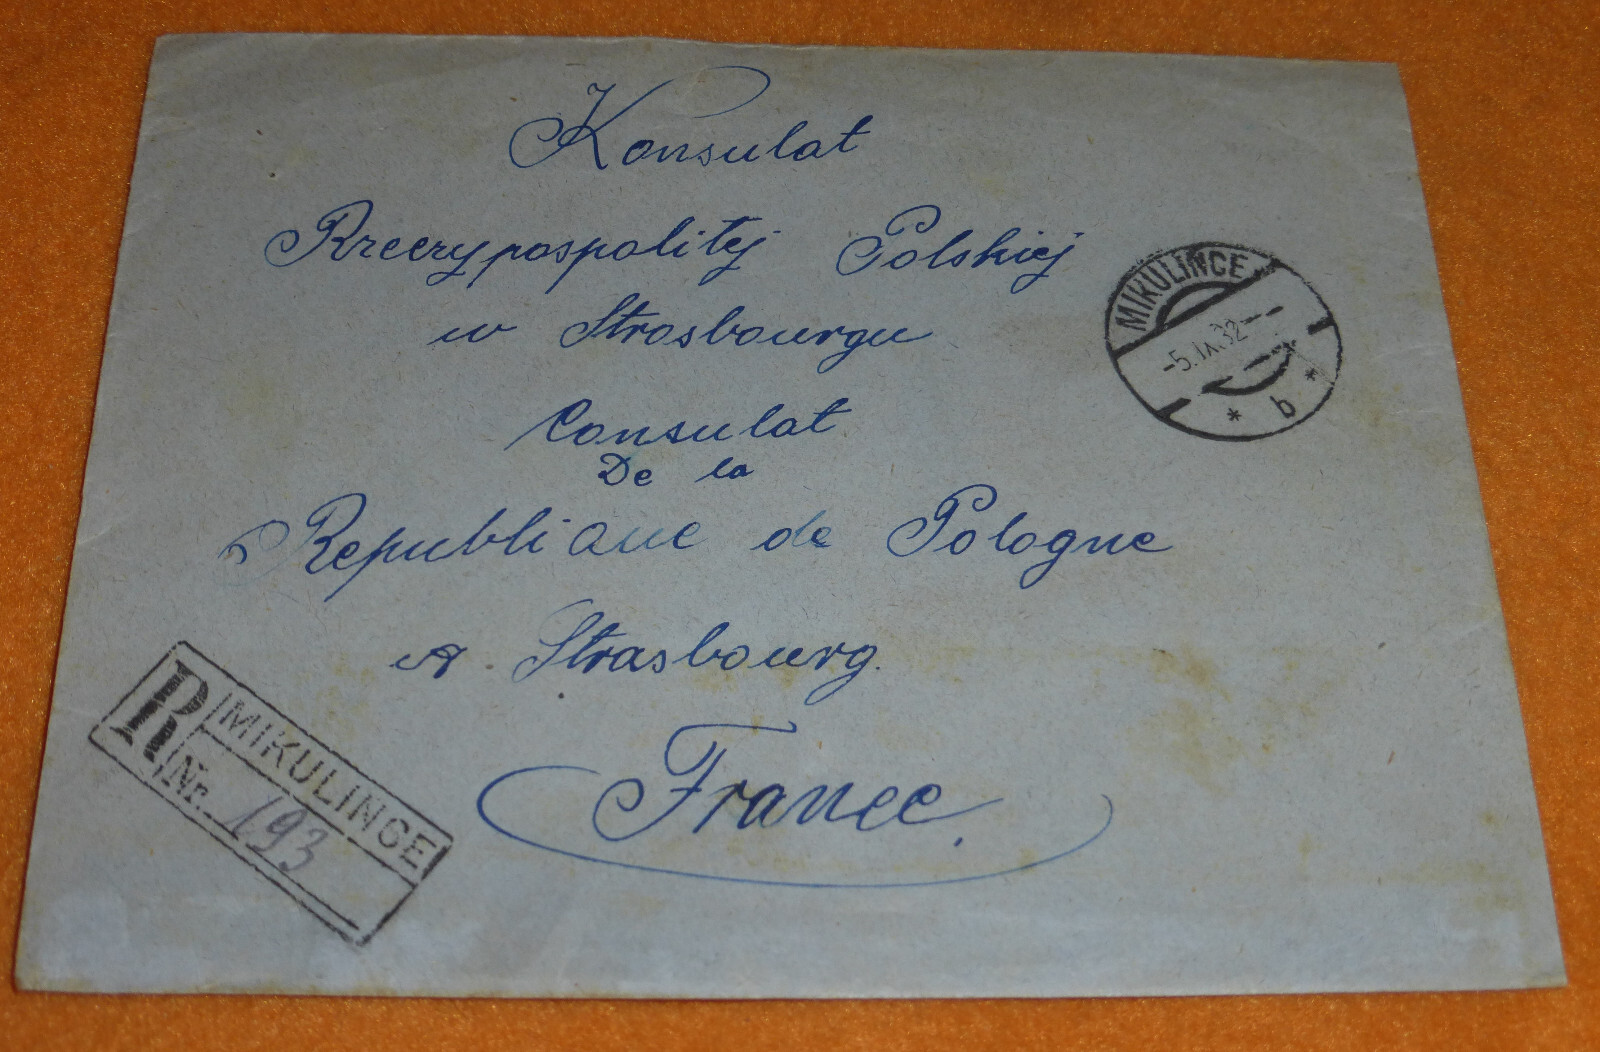 Konsulat
Rzeczypospolitej Polskiej
w Strosbourgu
Consulat
De la
Republique de Pologne
A Strasbourg.
France.
MIKULINCE
-5.IX.32-
* b *
R MIKULINCE
Nr. 193